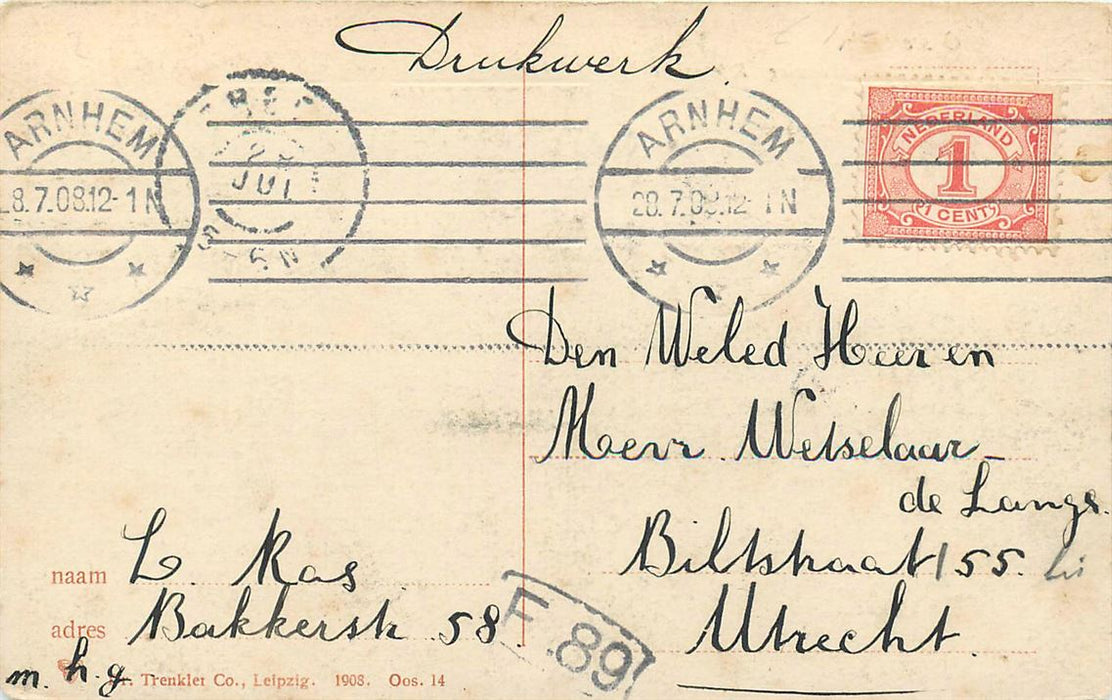 Drukwerk.
ARNHEM
28.7.08.12-1N
JUL
ARNHEM
28.7.08.12-1N
NEDERLAND
1
1 CENT
Den Weled Heer en
Mevr Wetselaar-
de Lange.
Biltstraat 155 bis
Utrecht.
naam L. Kas
adres Bakkerstr 58
m. h. g.
Dr. Trenkler Co., Leipzig. 1908. Oos. 14
F.89